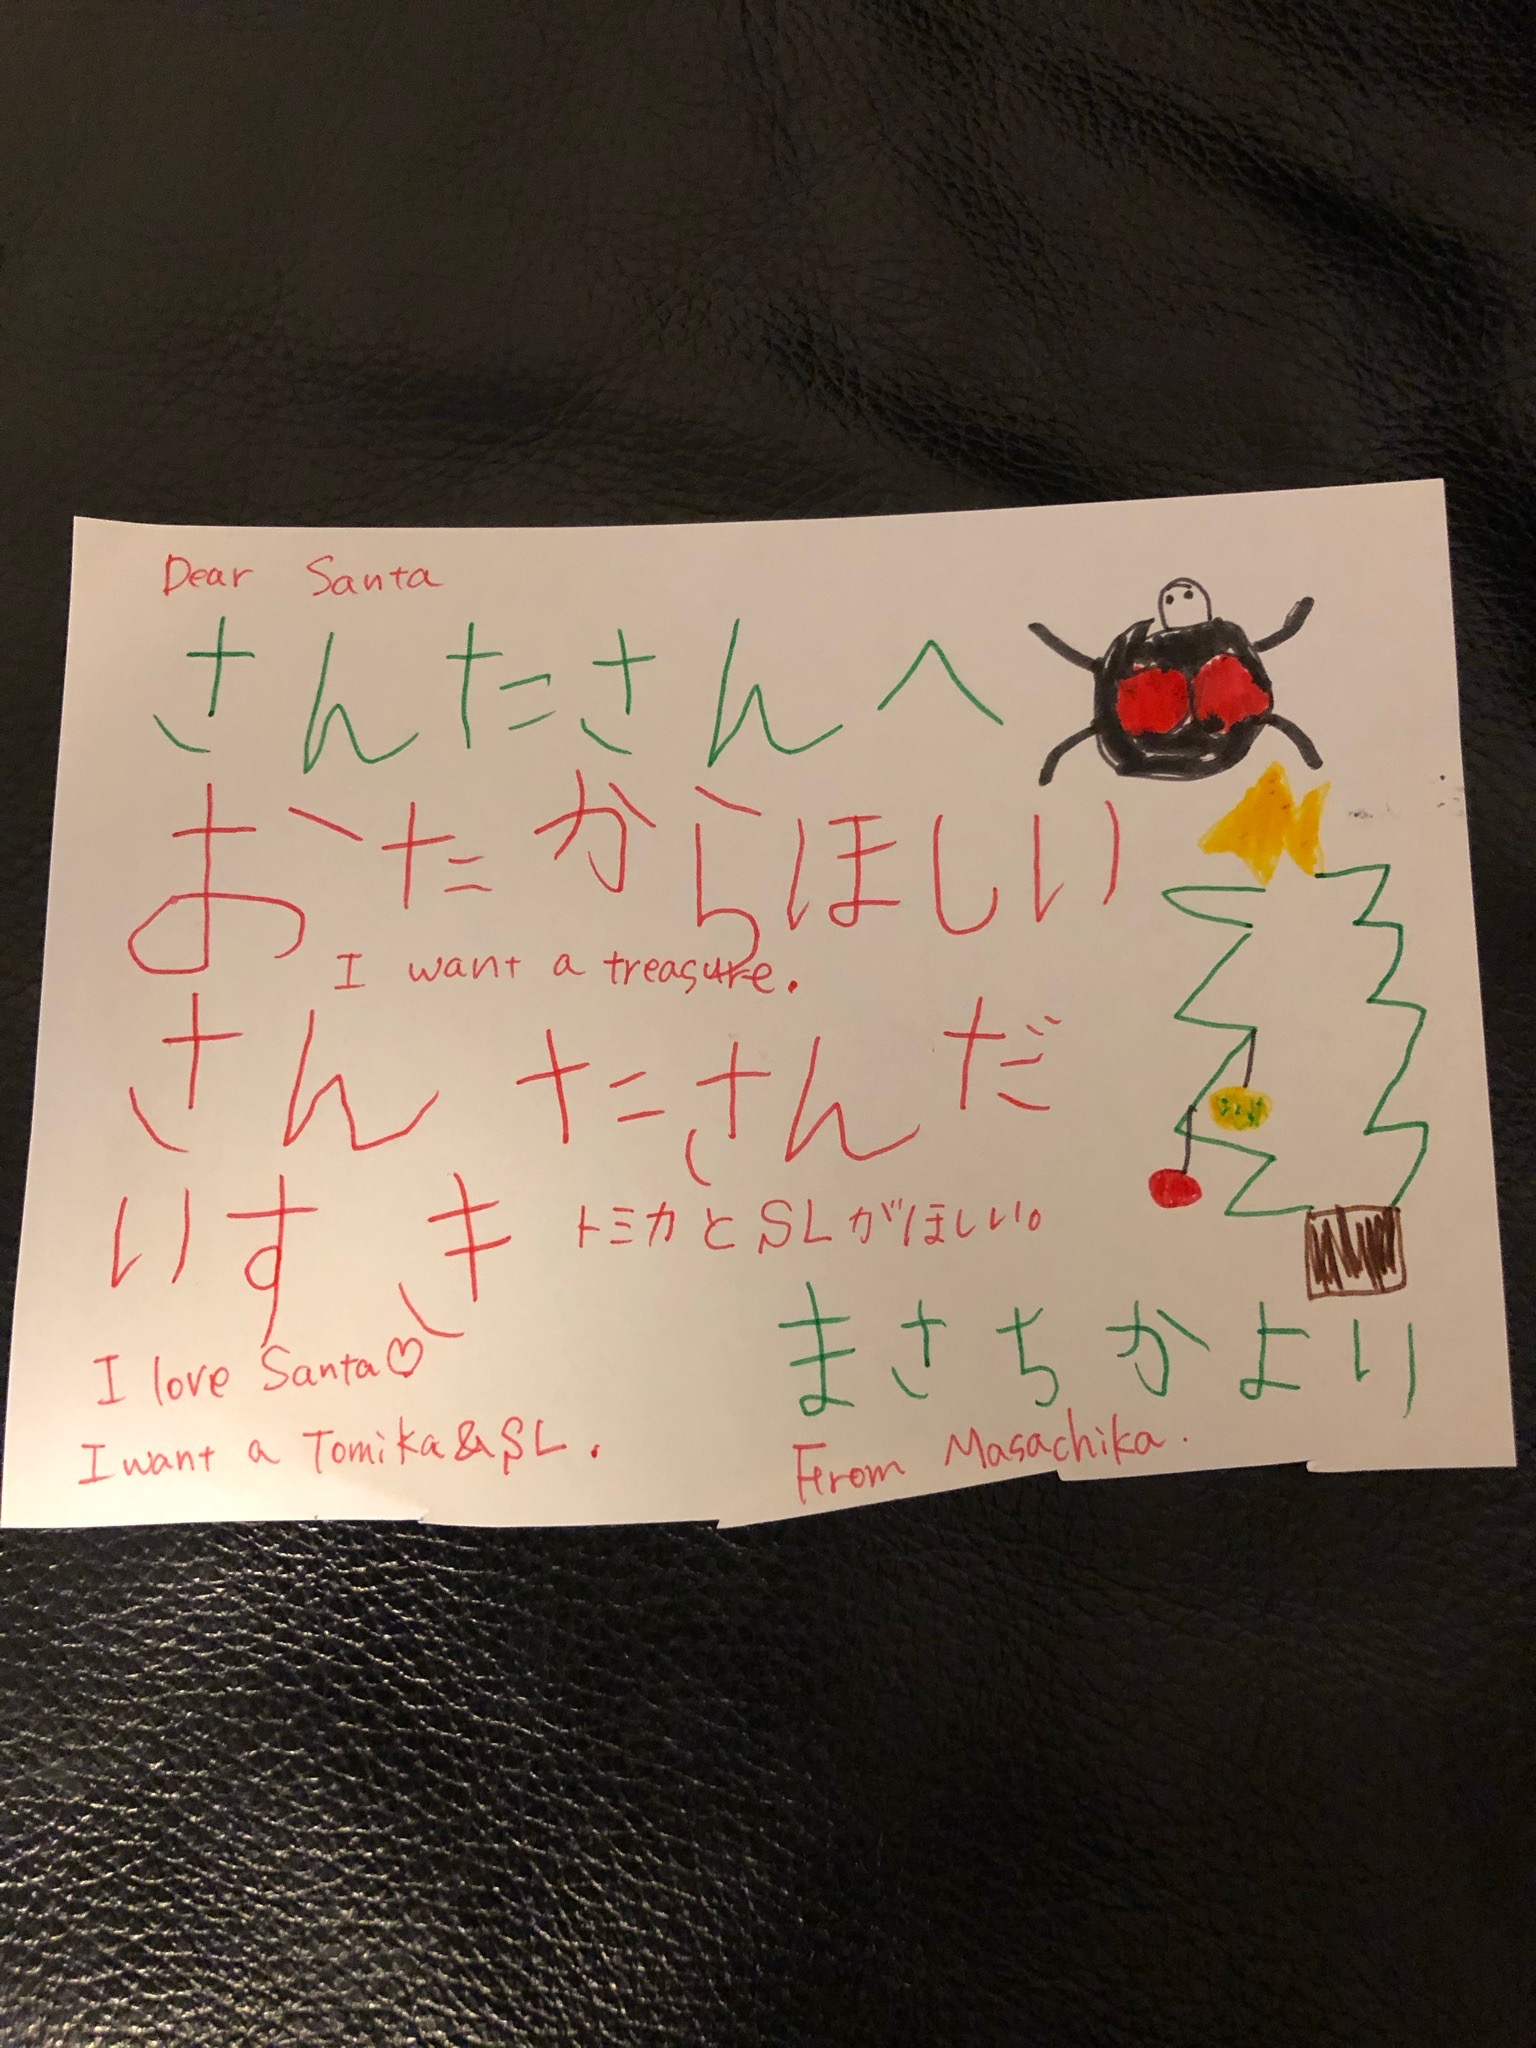 Dear Santa
さんたさんへ
おたからほしい
I want a treasure.
さんたさんだ
いすき
トミカとSLがほしい。
I love Santa♡
I want a Tomika&SL.
まさちかより
From Masachika.